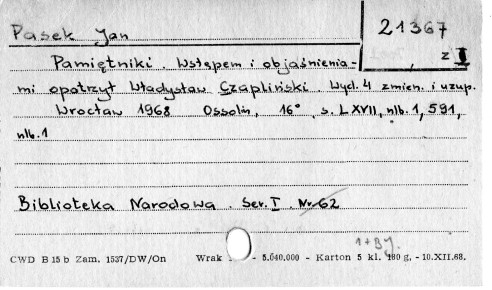 21367
z I
Pasek Jan
Pamiętniki. Wstępem i objaśnienia-
mi opatrzył Władysław Czapliński. Wyd. 4 zmien. i uzup.
Wrocław 1968 Ossolin, 16°, s. LXVII, nlb. 1, 591,
nlb. 1
Biblioteka Narodowa. Ser. I. Nr 62
1+BJ.
CWD B 15 b Zam. 1537/DW/On Wrak - 5.040.000 - Karton 5 kl. 180 g. - 10.XII.68.